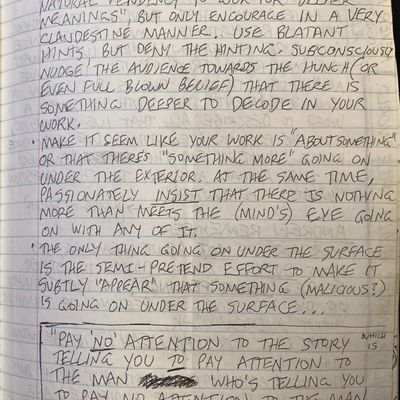 NATURAL TENDENCY TO LOOK FOR DEEPER
MEANINGS", BUT ONLY ENCOURAGE IN A VERY
CLANDESTINE MANNER. USE BLATANT
HINTS BUT DENY THE HINTING. SUBCONSCIOUSLY
NUDGE THE AUDIENCE TOWARDS THE HUNCH (OR
EVEN FULL BLOWN BELIEF) THAT THERE IS
SOMETHING DEEPER TO DECODE IN YOUR
WORK.
• MAKE IT SEEM LIKE YOUR WORK IS "ABOUT SOMETHING"
OR THAT THERE'S "SOMETHING MORE" GOING ON
UNDER THE EXTERIOR. AT THE SAME TIME,
PASSIONATELY INSIST THAT THERE IS NOTHING
MORE THAN MEETS THE (MIND'S) EYE GOING
ON WITH ANY OF IT.
• THE ONLY THING GOING ON UNDER THE SURFACE
IS THE SEMI-PRETEND EFFORT TO MAKE IT
SUBTLY "APPEAR" THAT SOMETHING (MALICIOUS?)
IS GOING ON UNDER THE SURFACE...
"PAY 'NO' ATTENTION TO THE STORY WHICH IS
TELLING YOU TO PAY ATTENTION TO
THE MAN WHO'S TELLING YOU
TO PAY NO ATTENTION TO THE MAN